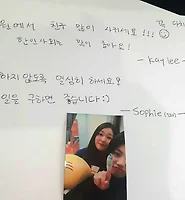 원에서 친구 많이 사귀세요!!! ☺
한인사회는 많이 좁아요!
- Kaylee -
하지 않도록 열심히 하세요?
일을 구하면 좋습니다:)
- Sophie